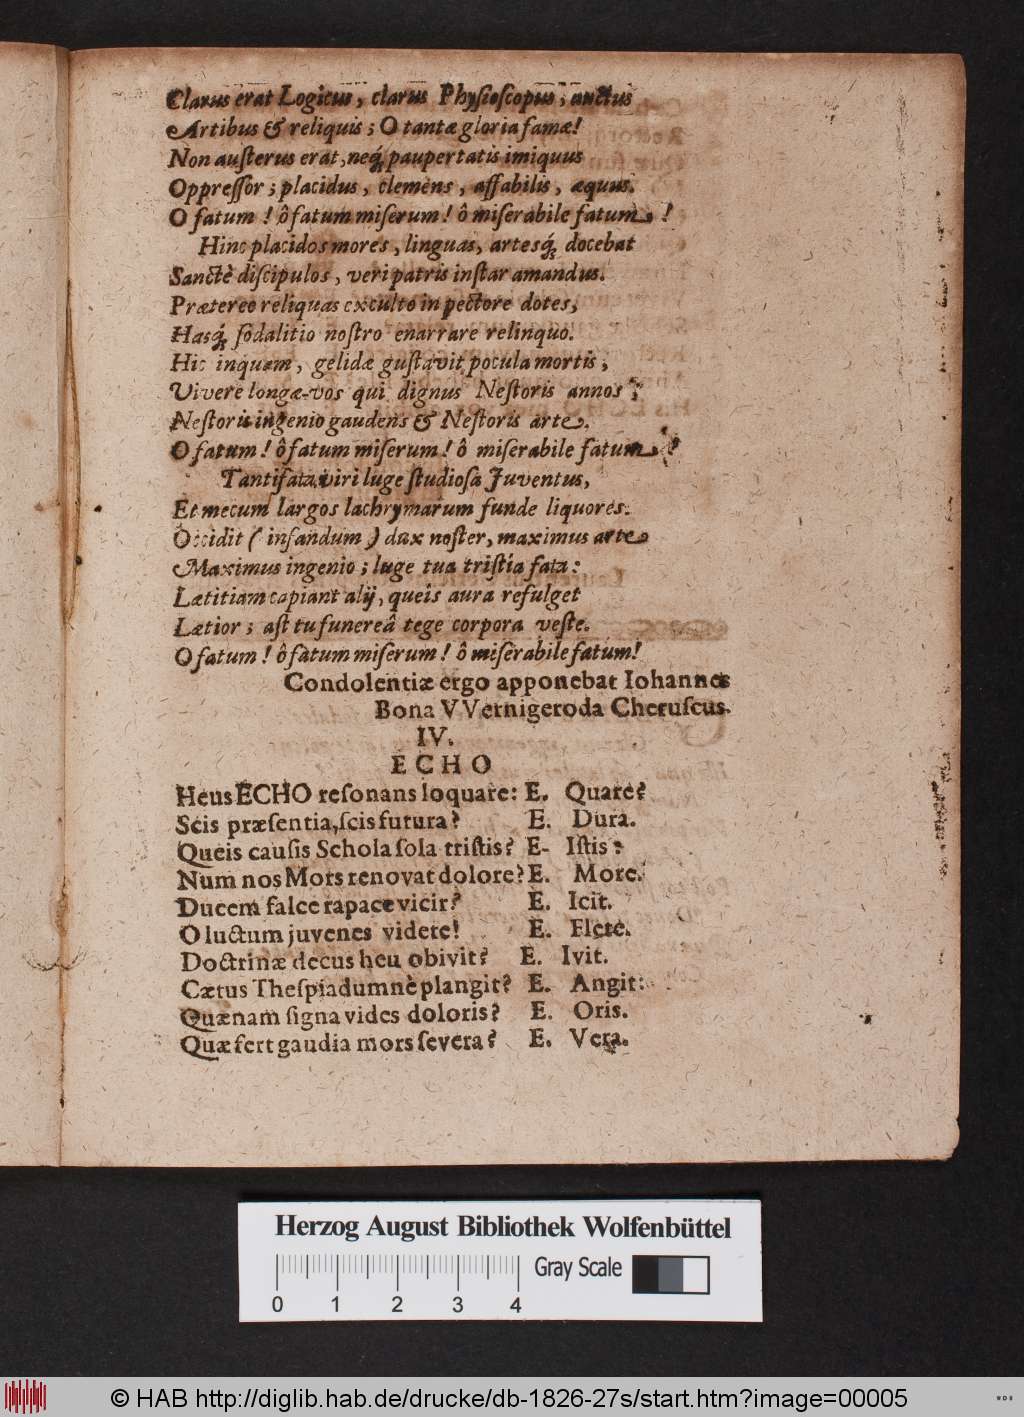 Clarus erat Logicus, clarus Physioscopus, auctus
Artibus & reliquis; O tantæ gloria famæ!
Non austerus erat, neq́; paupertatis imiquus
Oppressor; placidus, clemens, affabilis, æquus.
O fatum! ô fatum miserum! ô miserabile fatum!
Hinc placidos mores, linguas, artesq́; docebat
Sanctè discipulos, veri patris instar amandus.
Prætereo reliquas exculto in pectore dotes,
Hasq́; sodalitio nostro enarrare relinquo.
Hic inquam, gelidæ gustavit pocula mortis;
Vivere longæ-vos qui dignus Nestoris annos;
Nestoris ingenio gaudens & Nestoris arte.
O fatum! ô fatum miserum! ô miserabile fatum!
Tanti fata viri luge studiosa Juventus,
Et mecum largos lachrymarum funde liquores.
Occidit (infandum) dux noster, maximus arte
Maximus ingenio; luge tua tristia fata:
Lætitiam capiant alij, queis aura refulget
Lætior; ast tu funereâ tege corpora veste.
O fatum! ô fatum miserum! ô miserabile fatum!
Condolentiæ ergo apponebat Iohannes
Bona VVernigeroda Cheruscus.
IV.
ECHO
Heus ECHO resonans loquare: E. Quare?
Scis præsentia, scis futura? E. Dura.
Queis causis Schola sola tristis? E- Istis:
Num nos Mors renovat dolore? E. More.
Ducem falce rapace vicit? E. Icit.
O luctum juvenes videte! E. Flete.
Doctrinæ decus heu obivit? E. Ivit.
Cætus Thespiadumnè plangit? E. Angit:
Quænam signa vides doloris? E. Oris.
Quæ fert gaudia mors severa? E. Vera.
Herzog August Bibliothek Wolfenbüttel
Gray Scale
0 1 2 3 4
© HAB http://diglib.hab.de/drucke/db-1826-27s/start.htm?image=00005